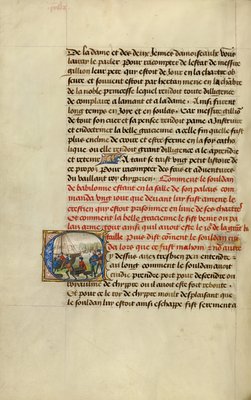 De la dame et des deux jeunes damoiseaulx vous
lauray le parler Pour racompter de lestat de messire
gillion leur pere qui estoit de jour en la chartre ob
scure et souvent estoit par hertan mene en la chābre
de la noble princesse lequel rendoit toute diligence
de complaire a lamant et a la dame Ainsi furent
long temps en joye et en soulas Car messire gillion
de tout son cuer et sa pensee rendoit paine a Instruire
et endoctriner la belle gracienne a celle fin quelle fust
plus encline de croire et estre ferme en la foy catho
lique ou elle rendoit grant dilligence a le aprendre
et retenir A tant se taist ung petit listoire de
ce propos Pour racompter des fais et aduentures
du vaillant roy chyprien Comment le souldan
de babilonne estant en la salle de son palais com
manda vng jour que deuant luy fust amene le
crestien qui estoit prisonnier en lune de ses chartres
Et comment la belle gracienne le fist venir ou pa
lais arme tout ainsi quil auoit este le jour de la grāt ba
taille Puis dist cōment le souldan cui
da lors que ce fust mahom
y dessus auez tresbien peu entendre
au long comment le souldan auoit
pour descendre ou
royaulme de chyppre ou il auoit este reboute
Et pour ce le roy de chyppre moult desplaisant que
le souldan luy estoit ainsi eschappe fist serement a